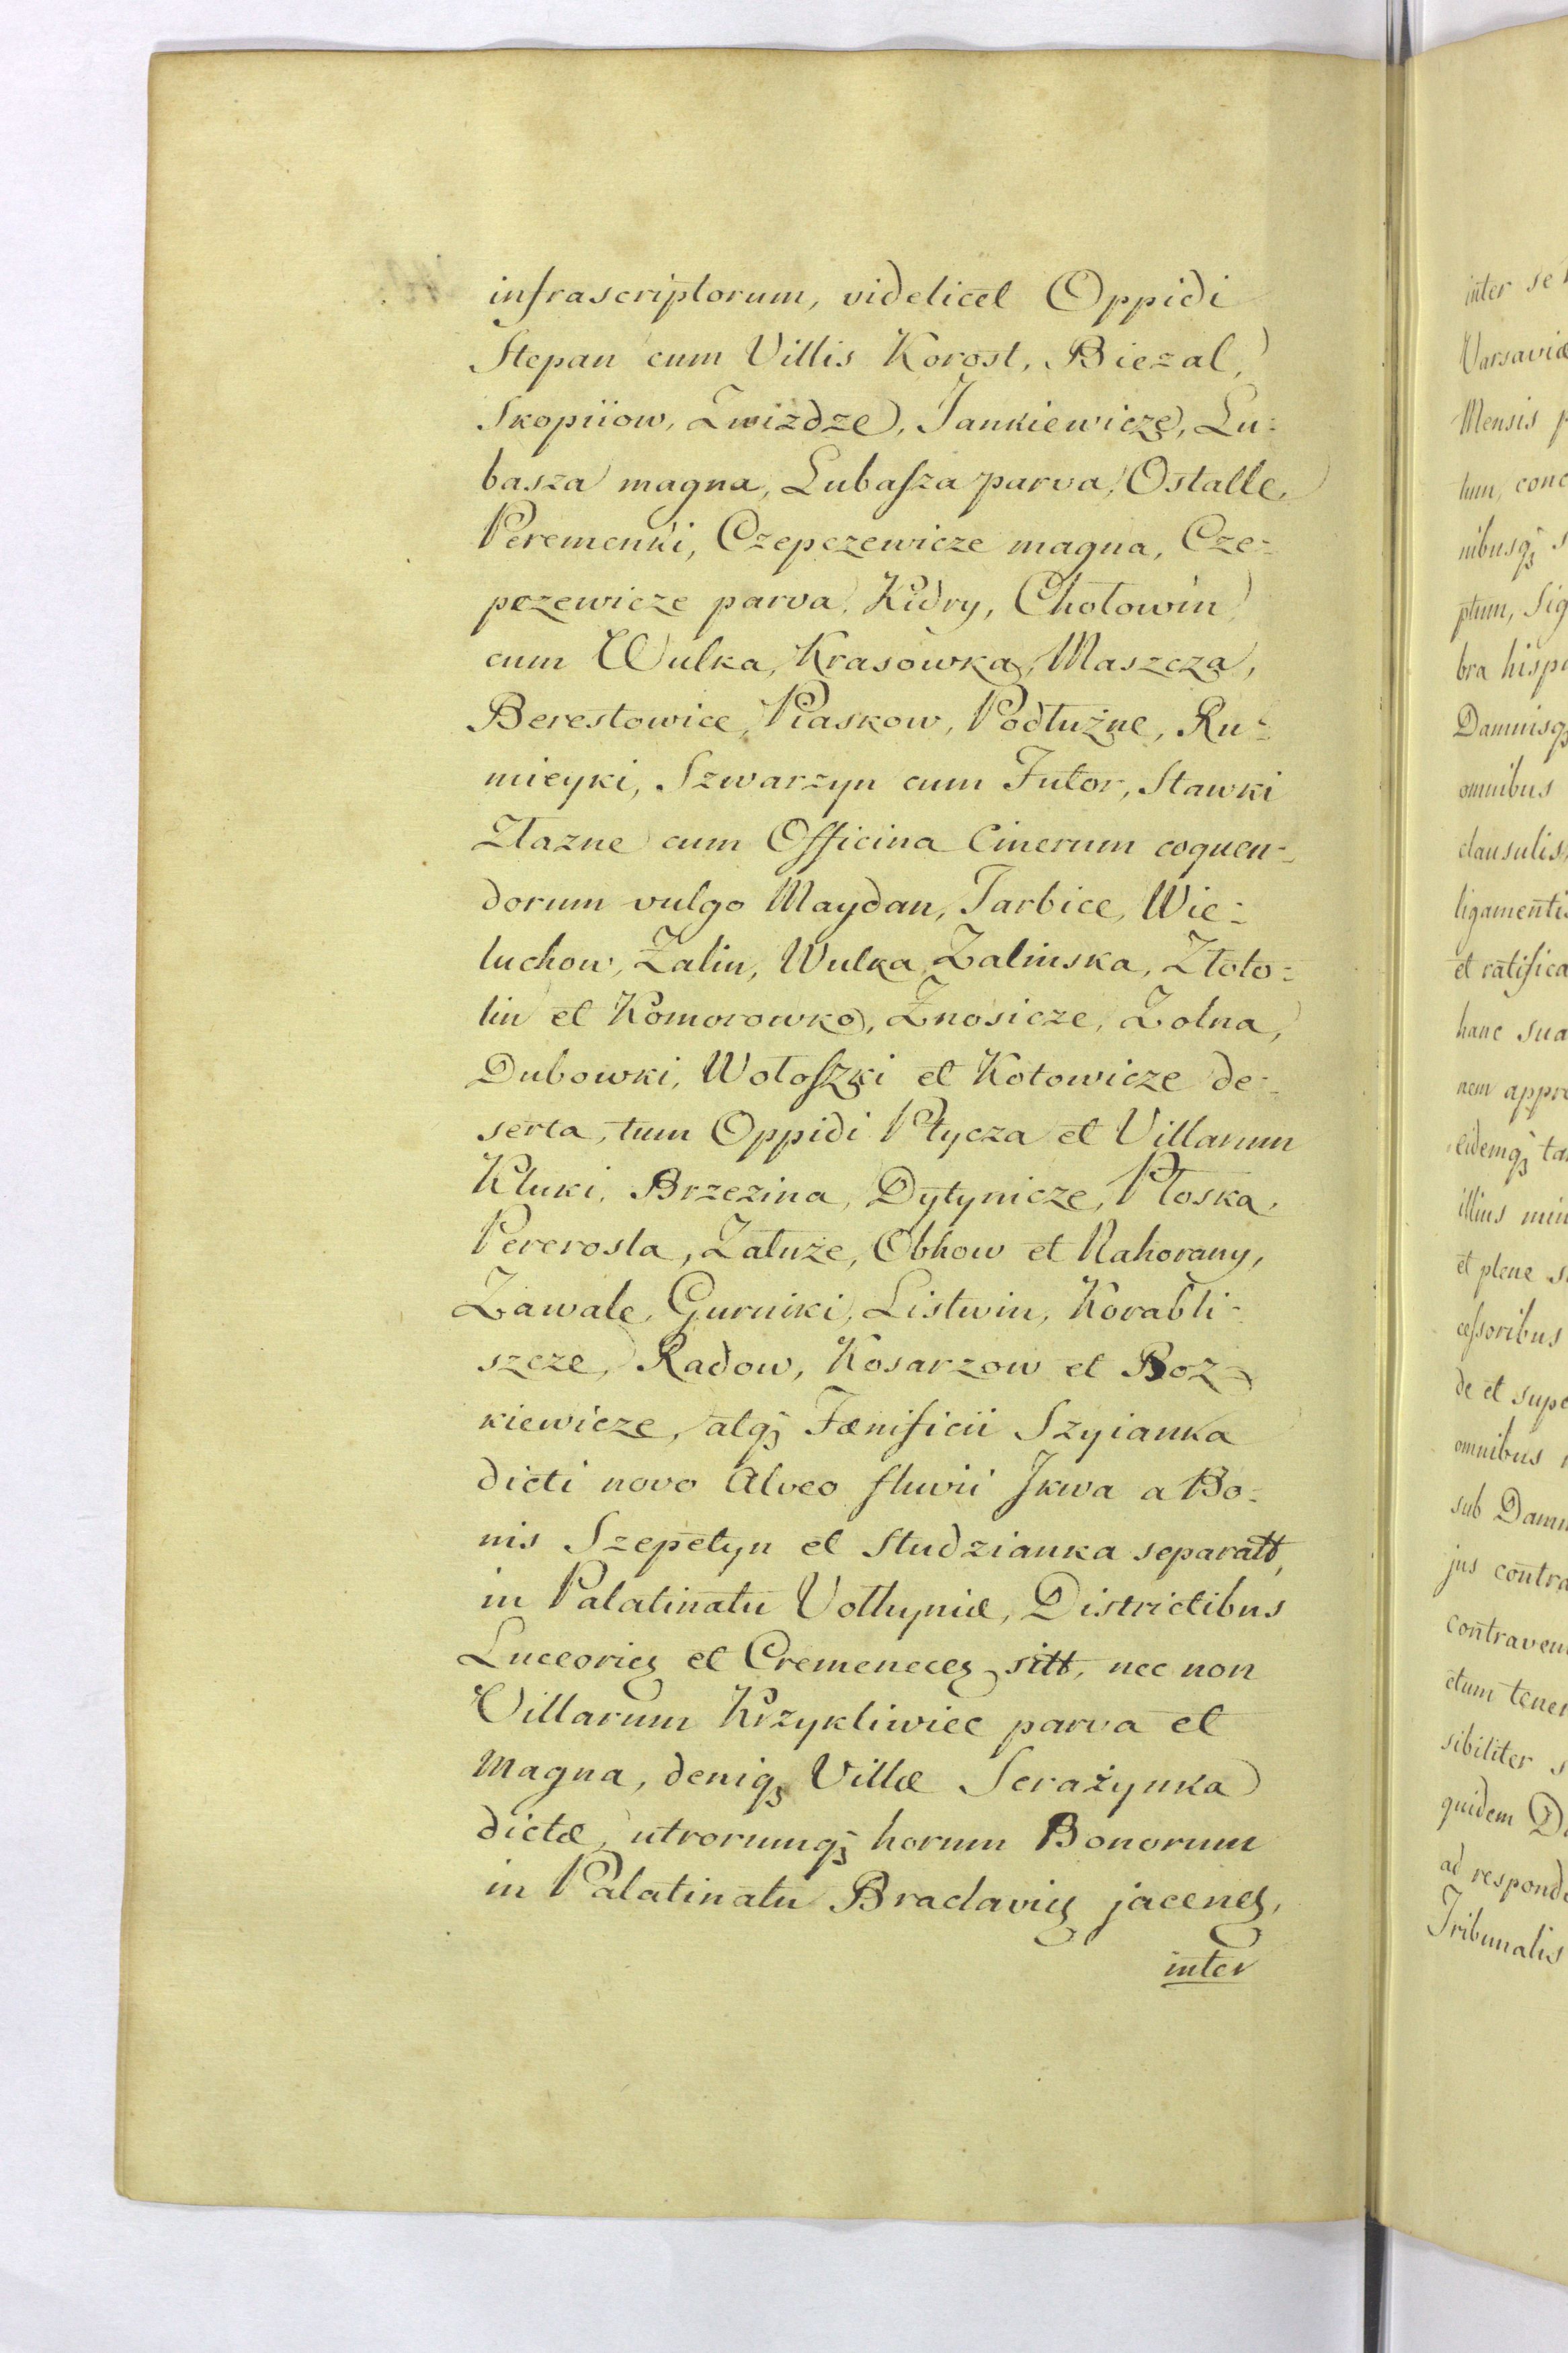 infrascriptorum, videlicet Oppidi
Stepan cum Villis Korost, Biezal,
Skopiiow, Zwizdze, Jankiewicze, Lu-
basza magna, Lubasza parva, Ostalle,
Peremenki, Czepczewicze magna, Cze-
pczewicze parva, Kidry, Chołowin
cum Wulka, Krasowka, Maszcza,
Berestowiec, Piaskow, Podłużne, Ru-
mieyki, Szwarzyn cum Futor, Stawki
Złazne cum Officina Cinerum coquen-
dorum vulgo Maydan, Jarbice, Wie-
luchow, Zalin, Wulka Zalinska, Złoto-
lin et Komorowko, Znosicze, Zolna,
Dubowki, Wołoszki et Kotowicze de-
serta, tum Oppidi Ptycza et Villarum
Kluki, Brzezina, Dytynicze, Płoska,
Pererosla, Załuże, Obhow et Nahorany,
Zawale, Gurniki, Listwin, Korabli-
szcze, Radow, Kosarzow et Boz-
kiewicze, atqꝫ Fœnificii Szyianka
dicti novo Alveo fluvii Ikwa a Bo-
nis Szepetyn et Studzianka separatt,
in Palatinatu Volhyniæ, Districtibus
Luceorieꝫ et Cremeneceꝫ sitt, nec non
Villarum Krzykliwiec parva et
Magna, deniqꝫ Villæ Serażynka
dictæ, utrorumqꝫ horum Bonorum
in Palatinatu Braclavieꝫ jaceneꝫ,
inter
inter se
Varsaviæ
Mensis
tum, conc
nibusqꝫ
ptum, Sig
bra hispa
Damnisqꝫ
omnibus
clausulis,
ligamentis
et ratifica
hanc sua
nem appro
eidemqꝫ ta
illius min
et plene
cessoribus
de et supe
omnibus
sub Damn
jus contra
contraven
ctum tener
sibiliter
quidem
ad responde
Tribunalis